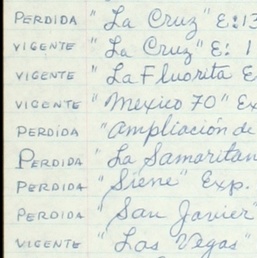 PERDIDA "La Cruz" E:13
VIGENTE "La Cruz" E: 1
VIGENTE "La Fluorita E
VIGENTE "Mexico 70" Ex
PERDIDA "Ampliación de
PERDIDA "La Samaritan
PERDIDA "Siene" Exp.
PERDIDA "San Javier"
VIGENTE "Las Vegas"